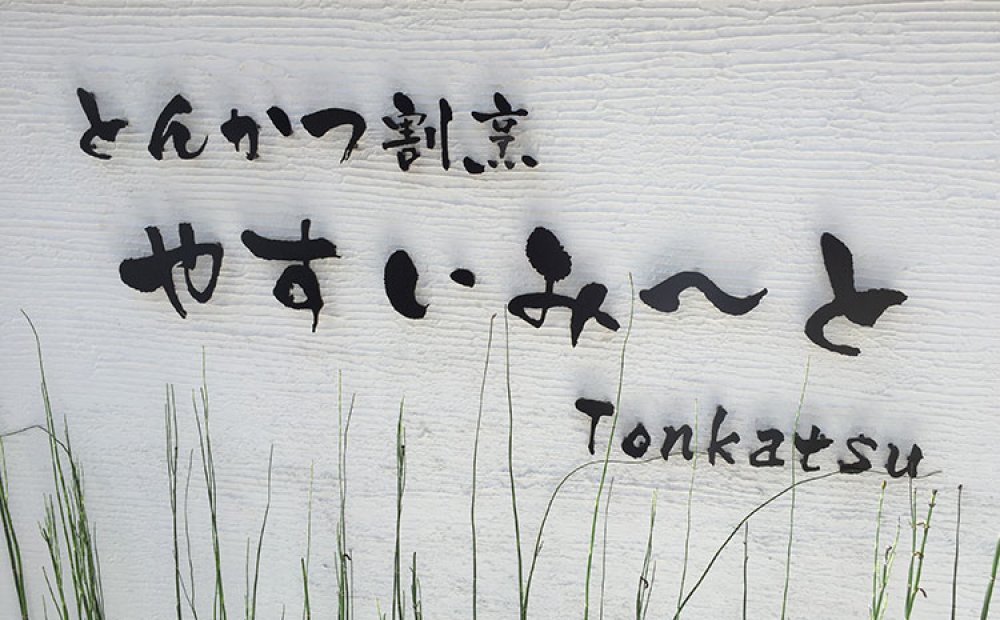 とんかつ割烹
やすいみ〜と
Tonkatsu